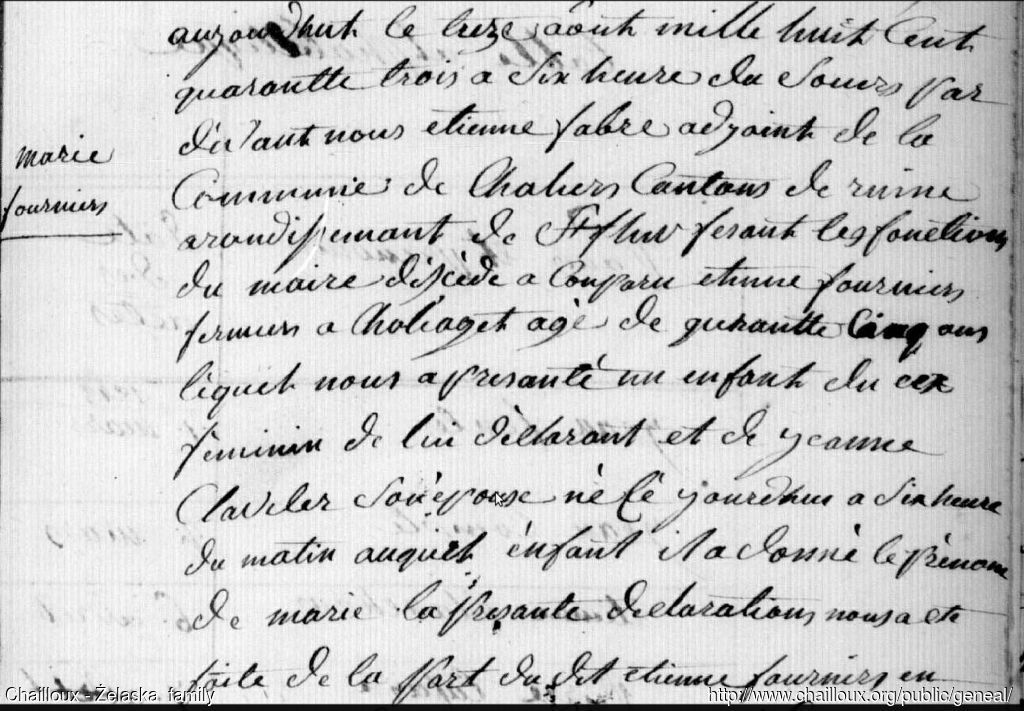 aujourdhuit le treze aôout mille huit Cent
quarantte trois a Six heure du Soirs par
dévant nous etienne fabre adjoint de la
marie
Commune de Chaliers Cantons de ruine
fourniers
arondissemant de St flour fesant les fonctions
du maire déscédé a Conparu etienne fourniers
fermiers a Choliaget agé de quarantte Cinq ans
léquel nous a presanté un enfant du cex
féminin de lui déclarant et de jeanne
Clavelez Son épouse né Ce jourdhui a Six heure
du matin auquel énfant il a donné le prénom
de marie la presante déclarations nous a ete
faite de la part du dit etienne fourniers en
Chailloux - Żelaska family
http://www.chailloux.org/public/geneal/